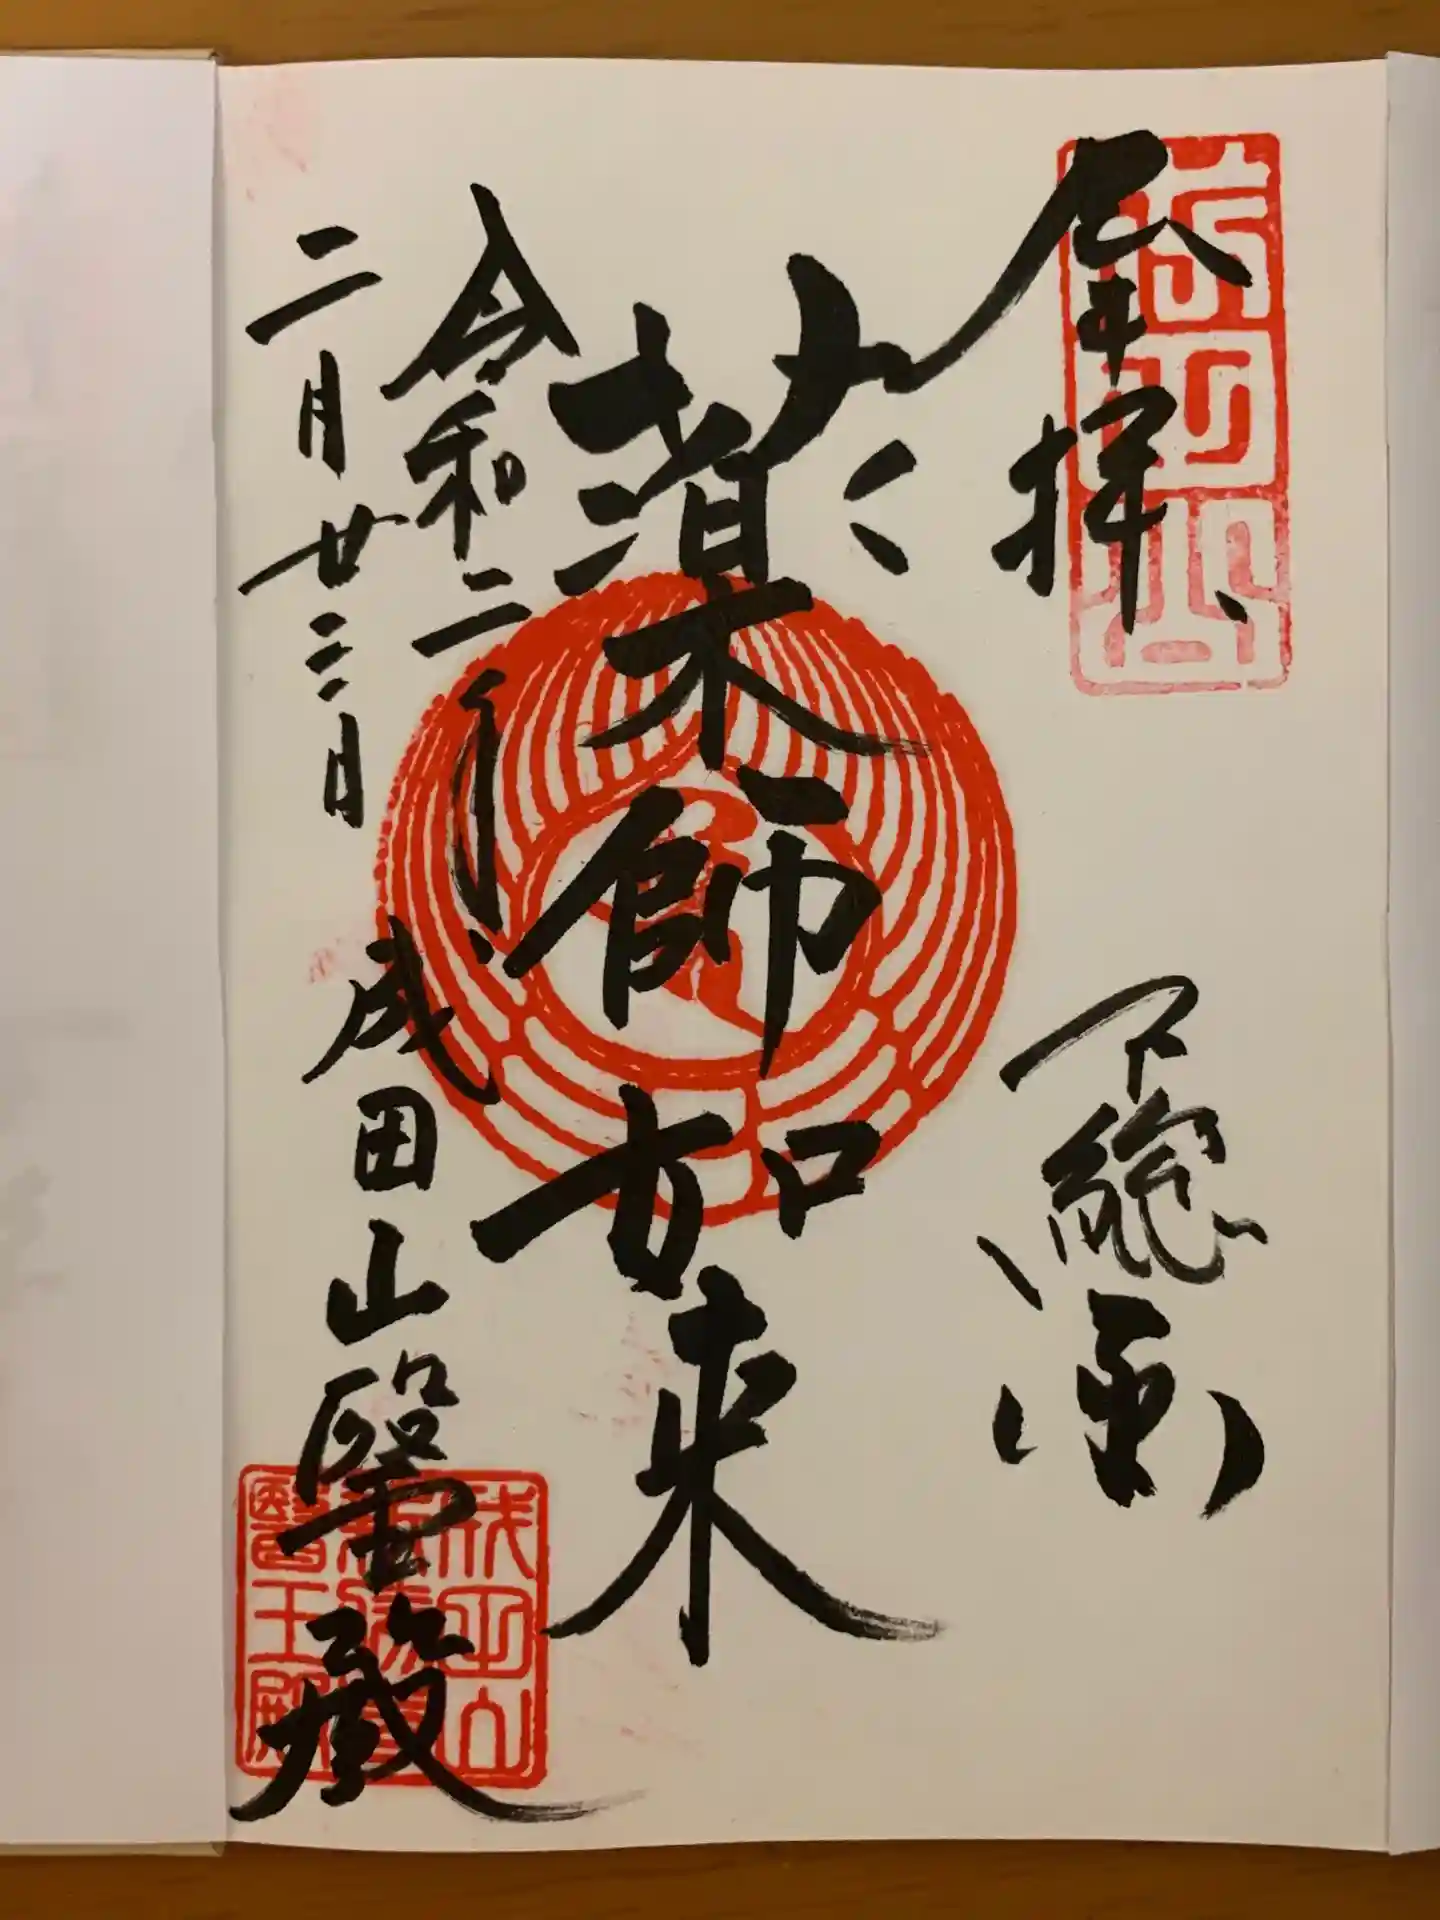 奉拝
下総國
藥師如来
令和二年
二月廿三日
成田山醫王殿
成田山
新勝寺
醫王殿